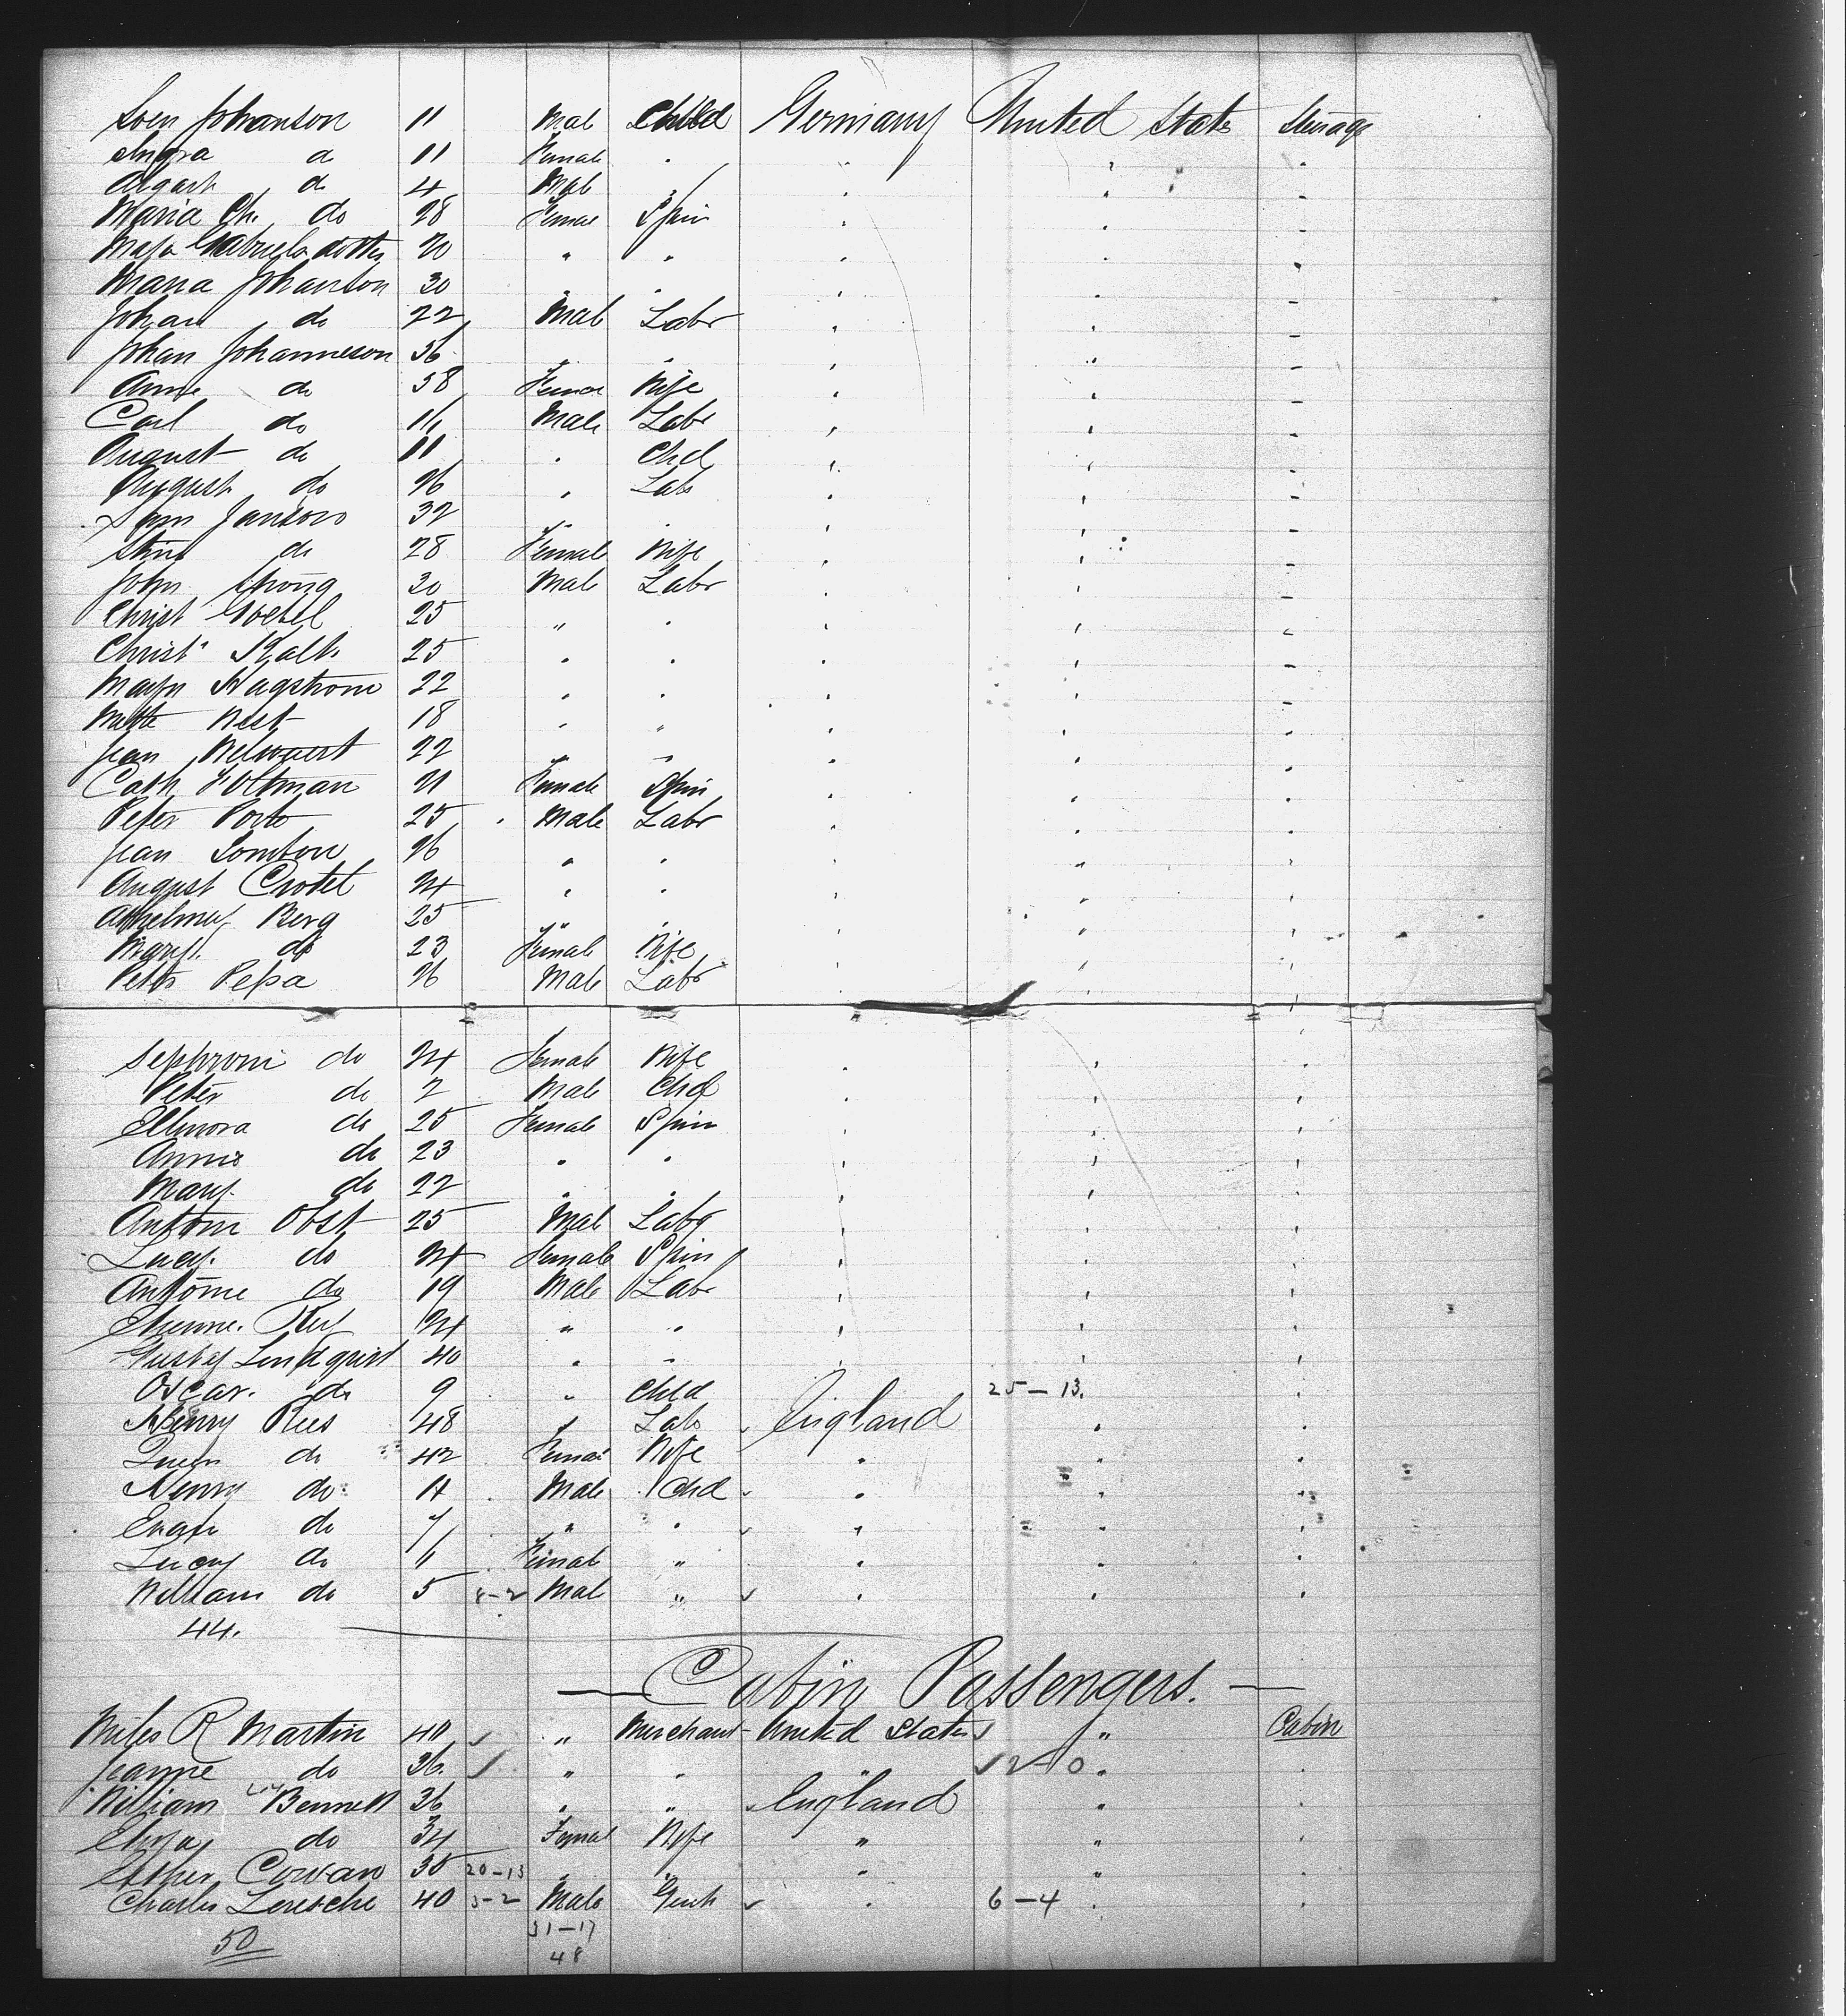 Sven Johanson 11 Male Child Germany United States Steerage
Ingra d 11 Female "
d 4 Male "
Maria Ch. do 28 Female Spin
Maja Gabrielsdotter 20 " "
Maria Johanson 30 " "
Johan do 22 Male Labr
Johan Johanneson 56 " "
Anna do 58 Female Wife
Carl do 11 Male Labr
August do 11 " Chd
August do 26 " Lab
Janson 32 " "
Stina do 28 Female Wife
John Strong 20 Male Labr
Christ Goebel 25 " "
Christ Kalb 25 " "
Hagstrom 22 " "
West 18 " "
Jean 22 " "
Cath Holtman 21 Female Spin
Peter Porte 25 Male Labr
Jean 26 " "
August Crotet 24 " "
Berg 25 " "
Mary do 23 Female Wife
Peter Pepa 26 Male Labr
Sephroni do 24 Female Wife
Peter do 2 Male Chd
Ellinora do 25 Female Spin
Annie do 23 " "
Mary do 22 " "
Antoni Obst 25 Male Labr
Lucy do 24 Female Spin
Antoine do 19 Male Labr
Etienne 24 " "
Gustaf Lindquist 40 " "
Oscar. do 9 " Chld 25-13.
Henry Rees 48 " Lab England "
do 42 Female Wife " "
Henry do 11 Male Chd " "
Evan do 7 " " " "
Lucy do 6 Female " " "
William do 5 8-2 Male " " "
44.
Cabin Passengers.
Miles R Martin 40 " Merchant United States " Cabin
Jeanne do 36. " " " 2-0 "
William Bennett 36 " " England "
Eliza do 34 Female Wife " "
Esther Cowan 35 20-13 " " " "
Charles Leresche 40 5-2 Male Gent " 6-4 "
31-17
50
48